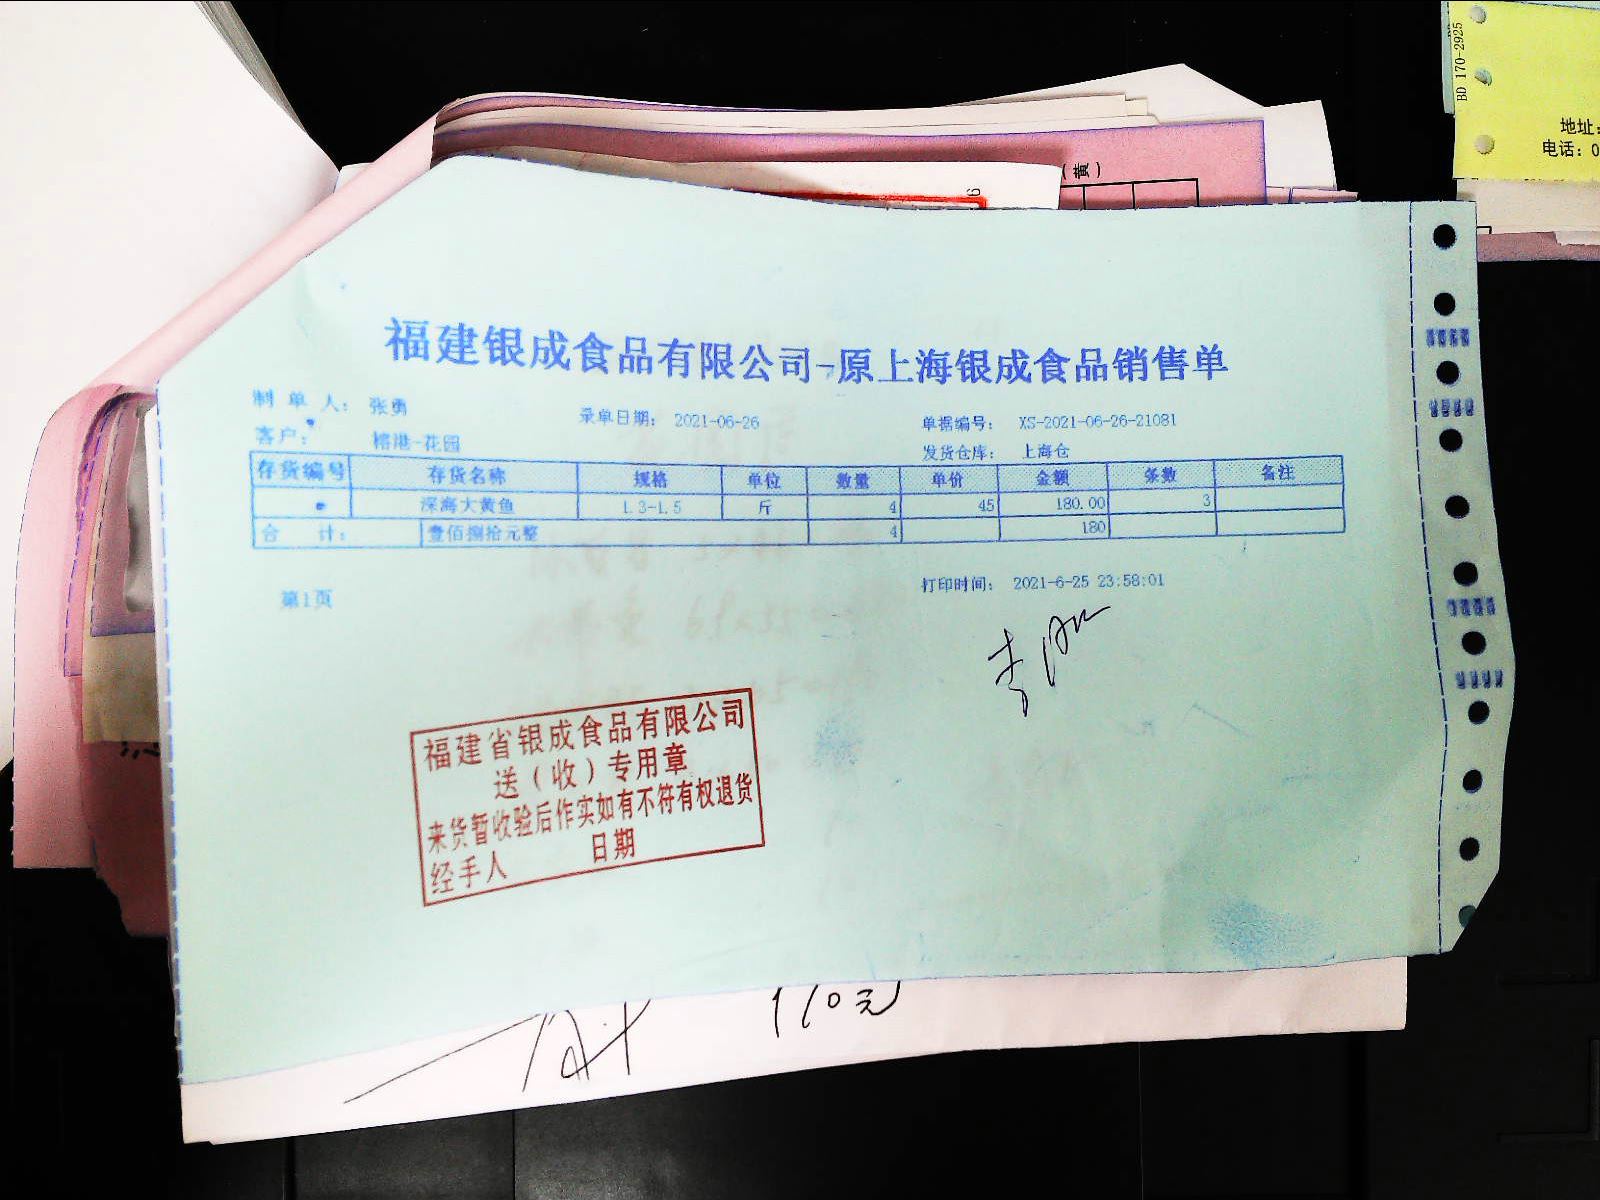 BD 170-2925
地址:
电话: 0
(黄)
6
福建银成食品有限公司-原上海银成食品销售单
制 单 人: 张勇
录单日期: 2021-06-26
单据编号: XS-2021-06-26-21081
客户: 榕港-花园
发货仓库: 上海仓
存货编号 存货名称 规格 单位 数量 单价 金额 条数 备注
深海大黄鱼 1.3-1.5 斤 4 45 180.00 3
合 计: 壹佰捌拾元整 4 180
第1页
打印时间: 2021-6-25 23:58:01
福建省银成食品有限公司
送(收)专用章
来货暂收验后作实如有不符有权退货
经手人 日期